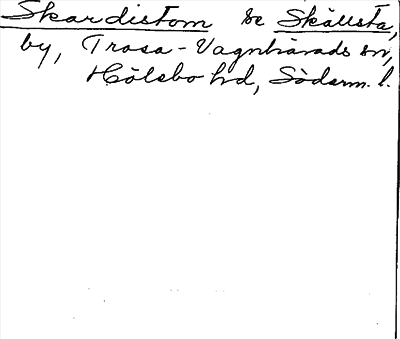 Skardistom se Skällsta,
by, Trosa-Vagnhärads sn,
Hölebo hd, Söderm. l.